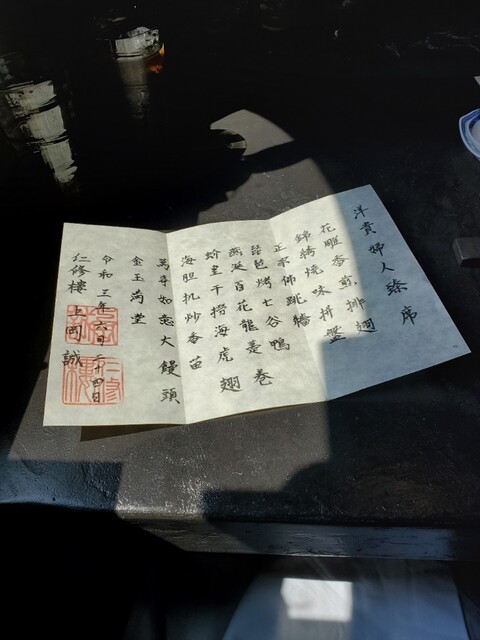 洋貴婦人臻席
花雕香煎排翅
錦綉焼味拼盤
正宗佛跳牆
琵琶烤七谷鴨
燕液百花龍巻
蚧皇干捞海虎翅
海胆扒炒香苗
萬寿如意大饅頭
金玉满堂
令和三年六月二十四日
仁修樓 上岡 誠